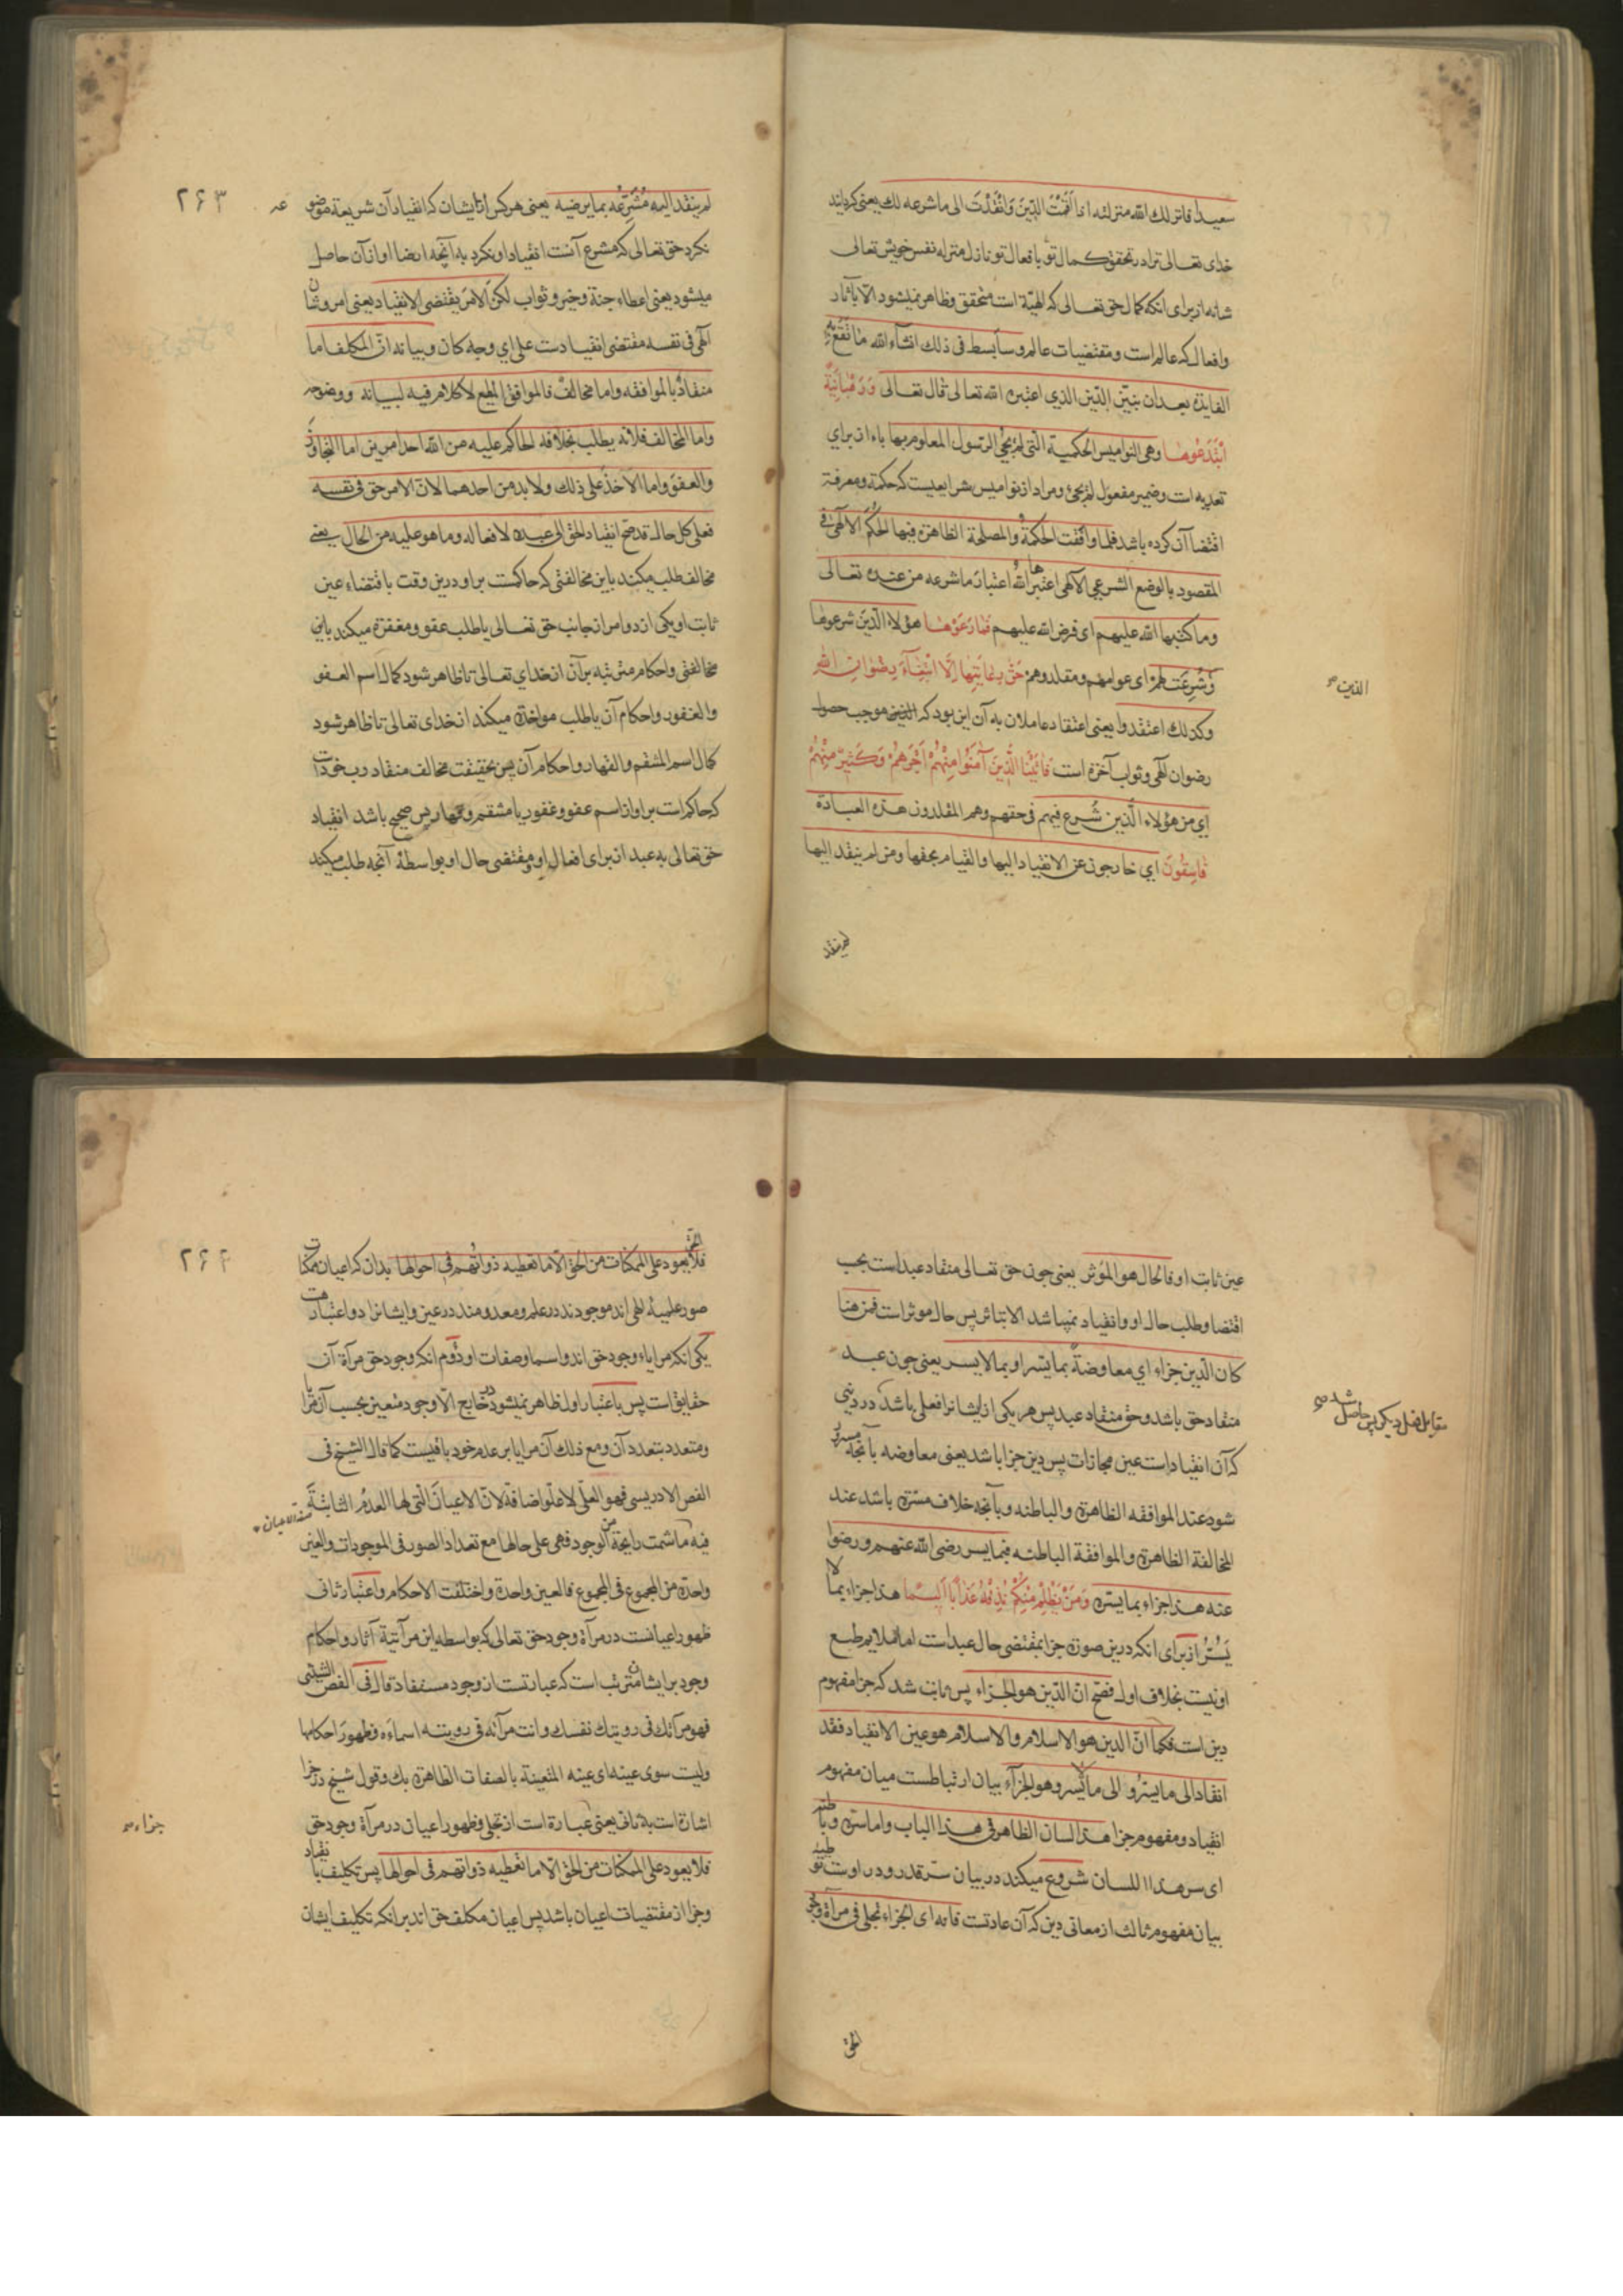 سعيدا فانزلك الله منزلته اذا اقمت الدين وانقدت الى ما شرعه لك يعنى كرداند
خداى تعالى ترا در تحقق كمال تو بافعال تو نازل منزله نفس خويش تعالى
شانه از براى انكه كمال حق تعالى كه الهية است متحقق وظاهر نميشود الا باثار
وافعال كه عالم است ومقتضيات عالم وسابسط فى ذلك انشاء الله ما تقع به
الفايدة بعد ان نبين الدين الذي اعتبره الله تعالى قال تعالى وَرَهْبَانِيَّةً
ابْتَدَعُوهَا وهى النواميس الحكمية التى لم يجئ الرسول المعلوم بها باء از براي
تعديه است وضمير مفعول لم يجئ ومراد از نواميس شرايعيست كه حكمة ومعرفة
اقتضا آن كرده باشد فلما وافقت الحكمة والمصلحة الظاهرة فيها الحكم الالهى فى
المقصود بالوضع الشرعي الالهى اعتبرها الله اعتبار ما شرعه من عنده تعالى
وما كتبها الله عليهم اى فرض الله عليهم فَمَا رَعَوْهَا هؤلاء الذين شرعوها
وشرعت لهم اى عوامهم ومقلدوهم حَقَّ رِعَايَتِهَا إِلَّا ابْتِغَاءَ رِضْوَانِ اللهِ
وكذلك اعتقدوا يعنى اعتقاد عاملان به آن اين بود كه الدين موجب حصول
رضوان الهى وثواب آخرة است فَآتَيْنَا الَّذِينَ آمَنُوا مِنْهُمْ أَجْرَهُمْ وَكَثِيرٌ مِنْهُمْ
اي من هؤلاء الذين شرع فيهم فى حقهم وهم المقلدون هذه العبادة
فَاسِقُونَ اي خارجون عن الانقياد اليها والقيام بحقها ومن لم ينقد اليها
لم ينقد
۲۶۳
لم ينقد اليه مشرعه بما يرضيه يعنى هر كس از ايشان كه انقياد آن شريعة موضو عه
نكرد حق تعالى كه مشرع آنست انقياد او نكرد به آنچه ارضا او از آن حاصل
ميشود يعنى اعطاء جنة وخير وثواب لكن الامر يقتضى الانقياد يعنى امر وشان
الهى فى نفسه مقتضى انقيادست على اي وجه كان وبيانه ان المكلف اما
منقاد بالموافقه واما مخالف فالموافق المطيع لا كلام فيه لبيانه ووضوحه
واما المخالف فلانه يطلب بخلافه الحاكم عليه من الله احد امرين اما التجاوز
والعفو واما الاخذ على ذلك ولا بد من احدهما لان الامر حق فى نفسه
فعلى كل حال قد صح انقياد الحق الى عبده لافعاله وما هو عليه من الحال يعنى
مخالف طلب ميكند باين مخالفتى كه حاكست بر او درين وقت باقتضاء عين
ثابت او يكى از دو امر از جانب حق تعالى يا طلب عفو ومغفرة ميكند باين
مخالفتى واحكام مترتبه بر آن از خداي تعالى تا ظاهر شود كمال اسم العفو
والغفور واحكام آن يا طلب مواخذه ميكند از خداى تعالى تا ظاهر شود
كمال اسم المنتقم والقهار واحكام آن پس بحقيقت مخالف منقاد رب خودست
كه حاكم است بر او از اسم عفو وغفور يا منتقم وقهار پس صحيح باشد انقياد
حق تعالى به عبد از براى افعال او ومقتضى حال او بواسطهٔ آنچه طلب ميكند
عين ثابت او فالحال هو المؤثر يعنى چون حق تعالى منقاد عبد است بحسب
اقتضا وطلب حال او وانقياد نميباشد الا بتاثر پس حال موثر است فمن هنا
كان الدين جزاء اي معاوضة بما يسر او بما لا يسر يعنى چون عبد
منقاد حق باشد وحق منقاد عبد پس هر يكى از ايشانرا فعلى باشد در
مقابل فعل ديكرى پس حاصل شد
كه آن انقياد است عين مجازات پس دين جزا باشد يعنى معاوضه بآنچه
شود عند الموافقه الظاهرة والباطنه وبآنچه خلاف مسرت باشد عند
المخالفة الظاهرة والموافقة الباطنه فبما يسر رضى الله عنهم ورضوا
عنه هذا جزاء بما يسره وَمَنْ يَظْلِمْ مِنْكُمْ نُذِقْهُ عَذَابًا أَلِيمًا هذا جزاء بما لا
يَسُرُّ از براى انكه درين صورة جزا بمقتضى حال عبد است اما ملايم طبع
او نيست بخلاف اول فصح ان الدين هو الجزاء پس ثابت شد كه جزا مفهوم
دين است فكما ان الدين هو الاسلام والاسلام هو عين الانقياد فقد
انقاد الى ما يسر والى ما لا يسر وهو الجزآء بيان ارتباطست ميان مفهوم
انقياد ومفهوم جزا هذا لسان الظاهر فى هذا الباب واما سره وباطنه
اى سر هذا اللسان شروع ميكند در بيان سر قدر ودر اوست
بيان مفهوم ثالث از معانى دين كه آن عادتست فانه اى الجزاء تجلى فى مرآة وجود
الحق
۲۶۴
الحق فلا يعود على الممكنات من الحق الا ما تعطيه ذواتهم فى احوالها بدان كه اعيان ممكنات
صور علميهٔ الهى اند موجودند در علم ومعدومند در عين وايشانرا دو اعتبارست
يكى انكه مراياء وجود حق اند واسما وصفات او دوم انكه وجود حق مرآة آن
حقايق است پس باعتبار اول ظاهر نميشود در خارج الا وجود متعين بحسب آن مرايا
ومتعدد بتعدد آن ومع ذلك آن مرايا بر عدم خود باقيست كما قال الشيخ فى
الفص الادريسى فهو العلى لا علو اضافة لان الاعيان التى لها العدم الثابتة
فيه ما شمت رايحة من الوجود فهى على حالها مع تعداد الصور فى الموجودات والعين
واحدة من المجموع فى المجموع فالعين واحدة واختلفت الاحكام واعتبار ثانى
ظهور اعيانست در مرآة وجود حق تعالى كه بواسطه اين مرآتية آثار واحكام
وجود بر ايشان مترتب است كه عبارتست از وجود مستفاد قال فى الفص الشيثى
فهو مرآتك فى رويتك نفسك وانت مرآته فى رويته اسماءه وظهور احكامها
وليست سوى عينه اى عينه المتعينة بالصفات الظاهرة بك وقول شيخ در جزا
اشارة است به ثانى يعنى عبارة است از تجلى وظهور اعيان در مرآة وجود حق
جزاء
فلا يعود على الممكنات من الحق الا ما تعطيه ذواتهم فى احوالها پس تكليف بانقياد
وجزا از مقتضيات اعيان باشد پس اعيان مكلف حق اند بر انكه تكليف ايشان